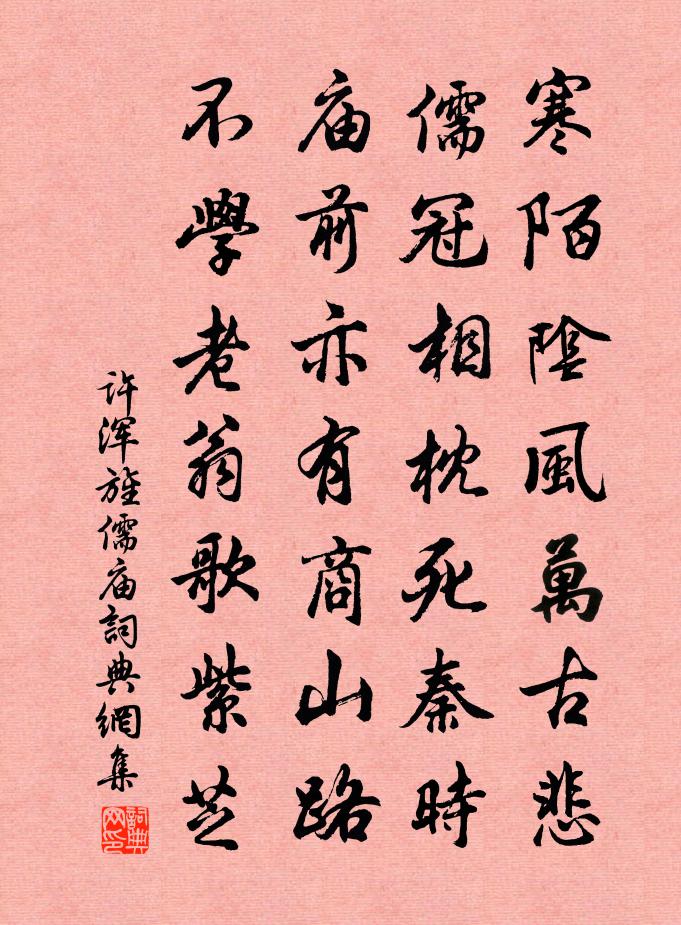 寒陌陰風萬古悲
儒冠相枕死秦時
庙前亦有商山路
不學老翁歌紫芝
许浑旌儒庙詞典網集
詞典网印